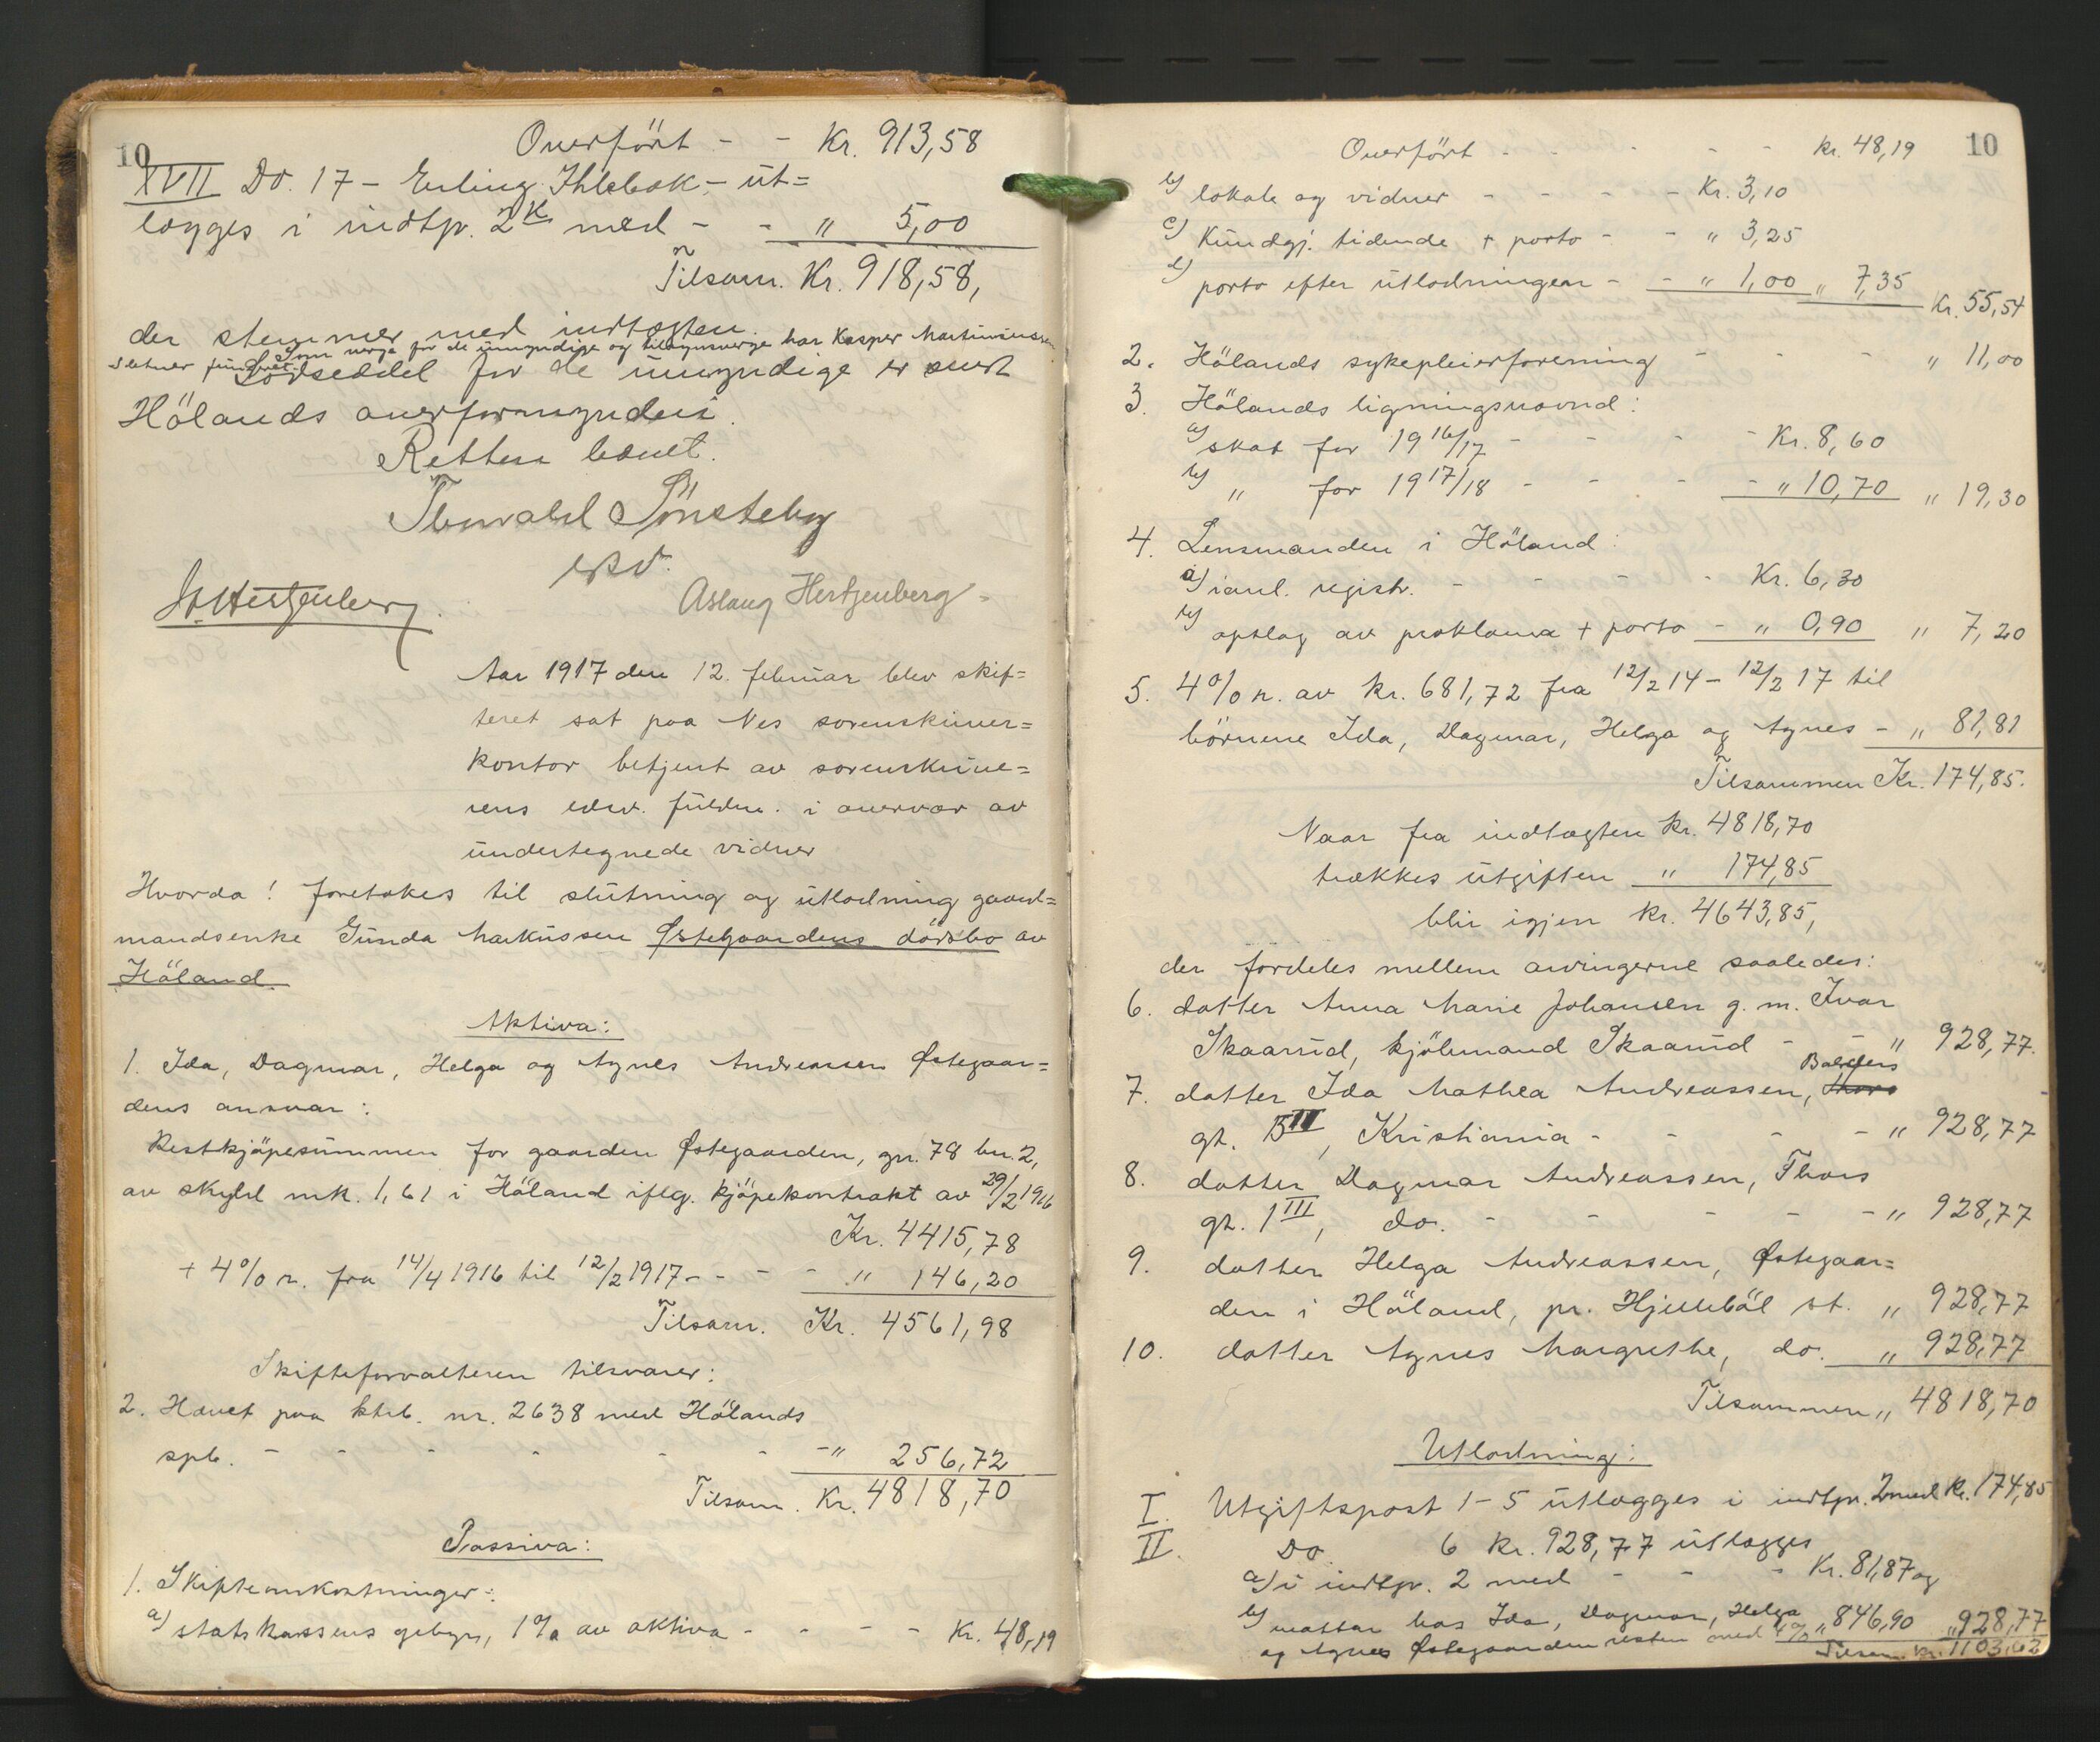 10
Overført - - Kr. 913,58
XVII Do. 17 - Erling Ihlebæk - ut=
lægges i indtp. 2 K med - - " 5,00
Tilsam. Kr. 918,58,
der stemmer med indtægten.
Som verge for de umyndige og tilsynsverge har Kasper Martiniussen
Sætner fungert.
Lodseddel for de umyndige er sendt
Hölands overformynderi.
Retten hævet.
Thorvald Tönsteby
esv.
Aslaug Hertzenberg
Hertzenberg.
Aar 1917 den 12. februar blev skif=
teret sat paa Nes sorenskriver=
kontor betjent av sorenskrive=
rens edsv. fuldm. i overvær av
undertegnede vidner
Hvorda! foretokes til slutning og utlodning gaard=
mandsenke Gunda Markussen Østegaardens dödsbo av
Höland.
Aktiva:
1. Ida, Dagmar, Helga og Agnes Andreassen Østegaar=
dens ansvar:
Restkjøpesummen for gaarden Østegaarden, gn. 78 bn. 2,
av skyld mk. 1,61 i Höland iflg. kjøpekontrakt av 29/2 1916
Kr. 4415,78
+ 4% r. fra 14/4 1916 til 12/2 1917 - - - - " 146,20
Tilsam. Kr. 4561,98
Skifteforvalteren tilsvarer:
2. Hævet paa ktrb. nr. 2638 med Hölands
spb. - - - - - - - " 256,72
Tilsam. Kr. 4818,70
Passiva:
1. Skifteomkostninger:
a) statskassens gebyr, 1% av aktiva - - - - Kr. 48,19
10
Overført - - - - - - kr. 48,19
b) lokale og vidner - - - - - Kr. 3,10
c) Kundgj. tidende + porto - - " 3,25
d) porto efter utlodningen - - " 1,00 " 7,35 Kr. 55,54
2. Hölands sykepleierforening - - - " 11,00
3. Hölands ligningsnævnd:
a) skat for 1916/17 - - - - Kr. 8,60
b) " for 1917/18 - - - - " 10,70 " 19,30
4. Lensmanden i Höland:
a) ianl. registr. - - - - Kr. 6,30
b) opslag av proklama + porto - " 0,90 " 7,20
5. 4% r. av kr. 681,72 fra 12/2 14 - 12/2 17 til
börnene Ida, Dagmar, Helga og Agnes - " 81,81
Tilsammen Kr. 174,85.
Naar fra indtægten kr. 4818,70
trækkes utgiften " 174,85
blir igjen kr. 4643,85,
der fordeles mellem arvingerne saaledes:
6. datter Anna Marie Johansen g. m. Ivar
Skaarud, kjölemand Skaarud - - " 928,77.
7. datter Ida Mathea Andreassen, Thors Balders
gt. 15 III, Kristiania - - - - " 928,77
8. datter Dagmar Andreassen, Thors
gt. 1 III, do. - - - - - - " 928,77
9. datter Helga Andreassen, Østegaar=
den i Höland, pr. Hjellebøl st. " 928,77
10. datter Agnes Margrethe, do. " 928,77
Tilsammen " 4818,70
Utlodning:
I. Utgiftspost 1-5 utlægges i indtp. 2 med kr. 174,85
II. Do 6 kr. 928,77 utlægges
a) i indtp. 2 med - - - Kr. 81,87 og
b) mottar hos Ida, Dagmar, Helga
og Agnes Østegaarden resten med 4% " 846,90 " 928,77
Tilsam. kr. 1103,62